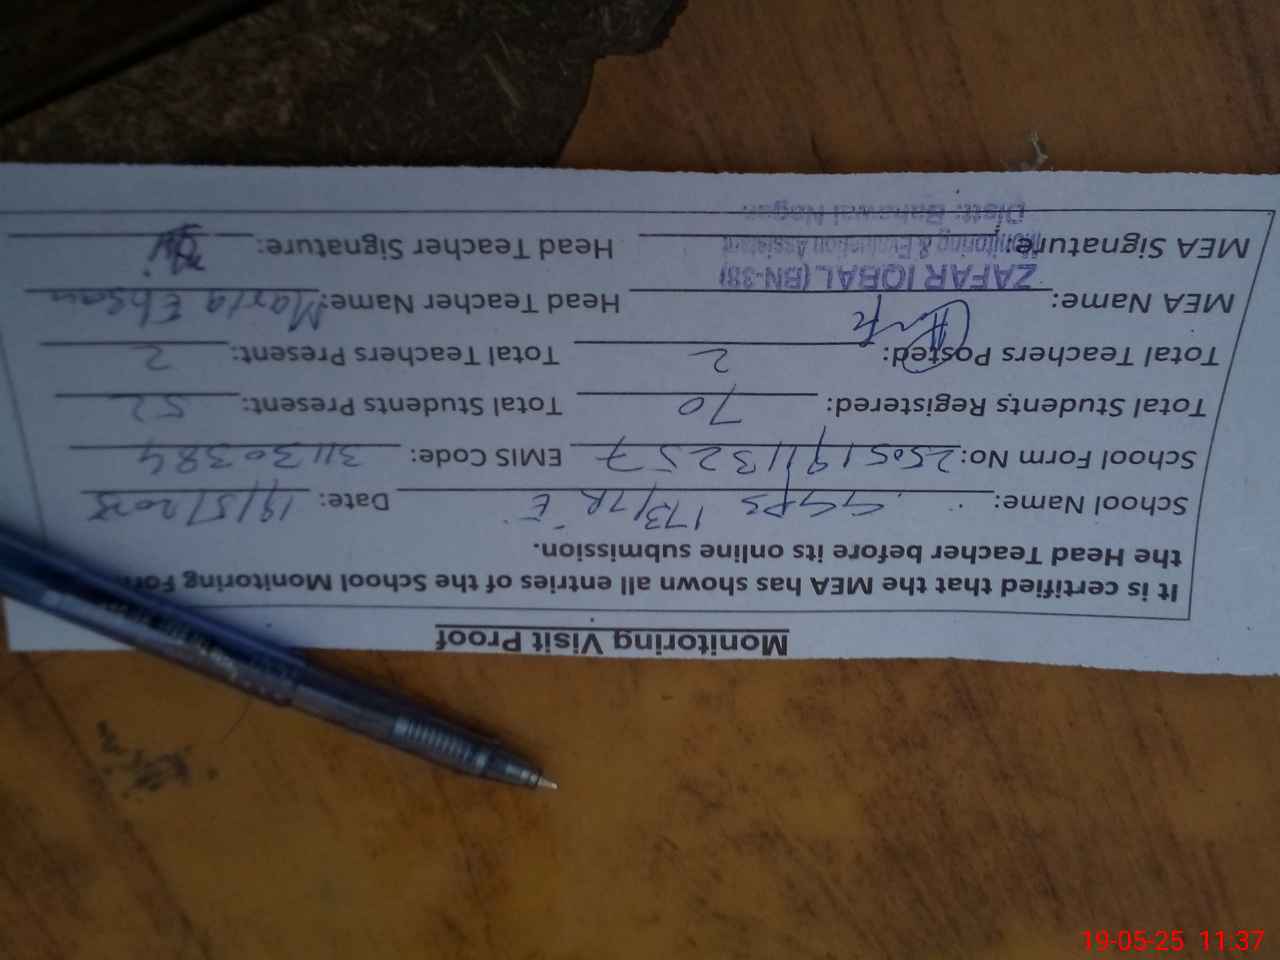 Monitoring Visit Proof
It is certified that the MEA has shown all entries of the School Monitoring Form
the Head Teacher before its online submission.
School Name: GGPS 173/7R "E" Date: 19/5/2025
School Form No: 2505191113257 EMIS Code: 31130384
Total Students Registered: 70 Total Students Present: 52
Total Teachers Posted: 2 Total Teachers Present: 2
MEA Name: Head Teacher Name: Maria Ehsan
ZAFAR IQBAL (BN-38)
Monitoring & Evaluation Assistant
MEA Signature: Head Teacher Signature:
Distt: Bahawal Nagar.
19-05-25 11:37